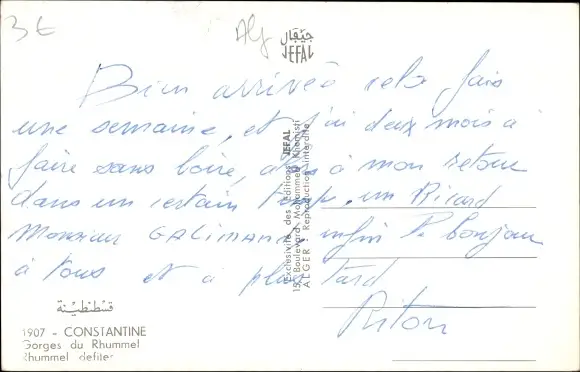 3€
Alg
جيفال
JEFAL
Bien arrivée cela fais
une semaine, et j'ai deux mois à
faire sans boire, alors à mon retour
dans un certain temps, un Ricard
Monsieur GALIMARD enfin le bonjour
à tous et à plus tard
Riton
Exclusivité des Editions JEFAL
Boulevard Mohammed Khemisti
ALGER - Reproduction interdite
قسنطينة
1907 - CONSTANTINE
Gorges du Rhummel
Rhummel defiter